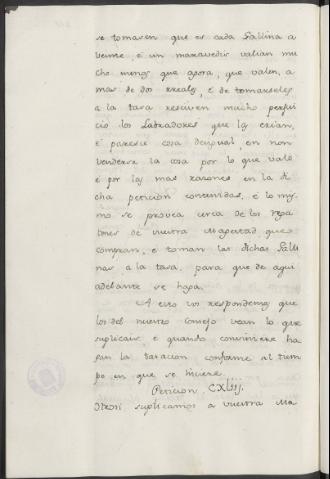 se tomasen que es cada Gallina a
veinte, é un maravedis valian mu
cho menos que agora, que valen, a
mas de dos rreales, é de tomarseles
a la tasa resciven mucho perjui
cio los Labradores que las crian,
é paresce cosa desigual en non
venderse la cosa por lo que vale
é por las mas razones en la di
cha peticion contenidas, é lo mis
mo se provea cerca de los repa
tores de vuestra Magestad que
compran, é toman las dichas Galli
nas a la tasa, para que de aqui
adelante se haga.
A esto vos respondemos que
los del nuestro Consejo vean lo que
suplicais é quando conviniere ha
gan la tasacion conforme al tiem
po en que se hiciere.
Peticion CXLiij.
Otrosi suplicamos a vuestra Ma